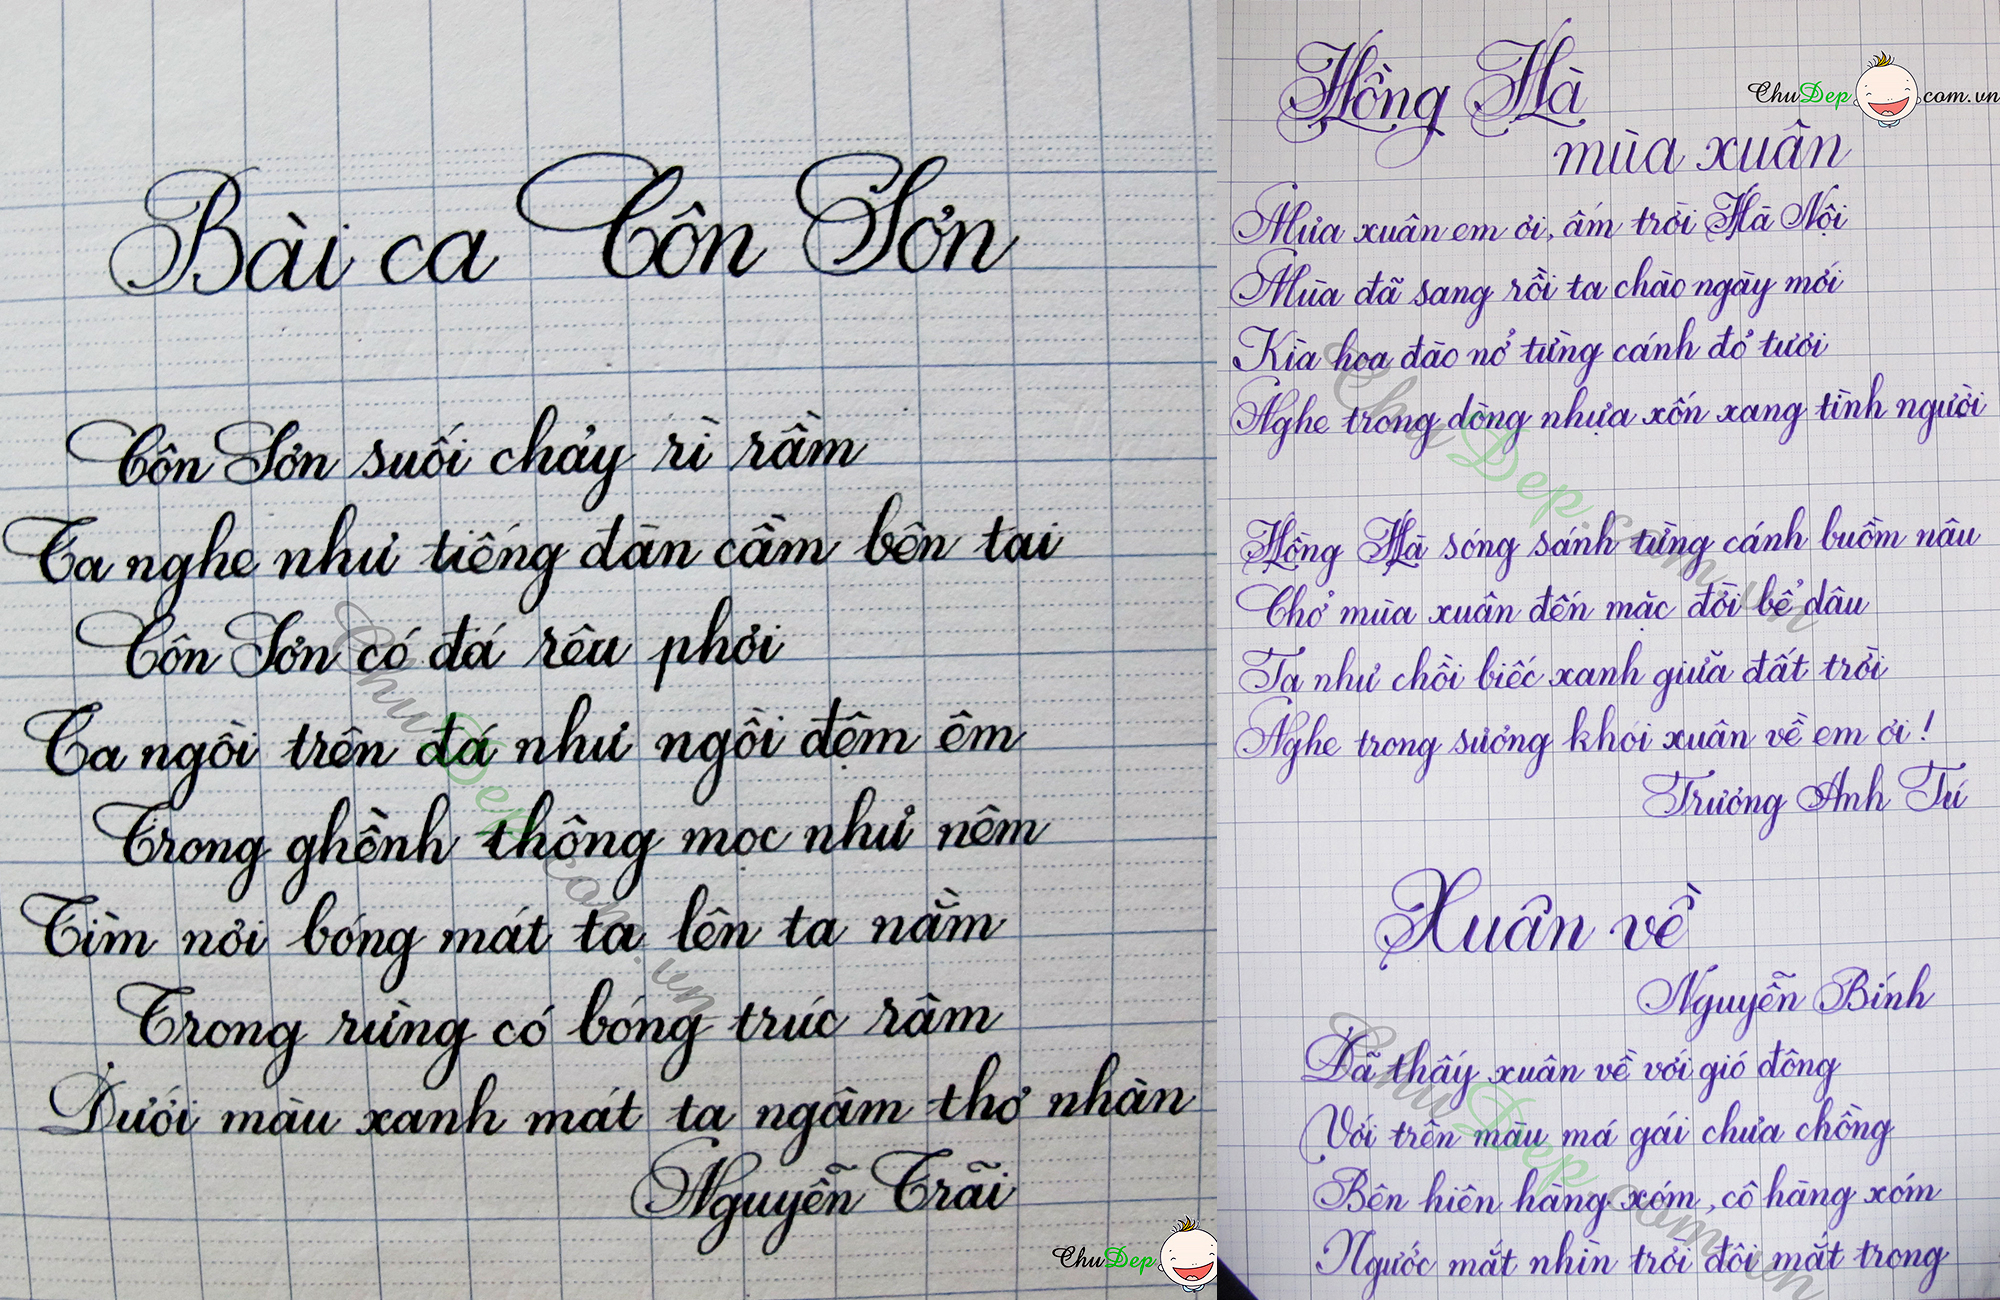 Bài ca Côn Sơn
Côn Sơn suối chảy rì rầm
Ta nghe như tiếng đàn cầm bên tai
Côn Sơn có đá rêu phơi
Ta ngồi trên đá như ngồi đệm êm
Trong ghềnh thông mọc như nêm
Tìm nơi bóng mát ta lên ta nằm
Trong rừng có bóng trúc râm
Dưới màu xanh mát ta ngâm thơ nhàn
Nguyễn Trãi
ChuDep
Hồng Hà
mùa xuân
ChuDep.com.vn
Mưa xuân em ơi, ấm trời Hà Nội
Mùa đã sang rồi ta chào ngày mới
Kìa hoa đào nở từng cánh đỏ tươi
Nghe trong dòng nhựa xốn xang tình người
Hồng Hà sóng sánh từng cánh buồm nâu
Chở mùa xuân đến mặc đời bể dâu
Ta như chồi biếc xanh giữa đất trời
Nghe trong sương khói xuân về em ơi !
Trương Anh Tú
Xuân về
Nguyễn Bính
Đã thấy xuân về với gió đông
Với trên màu má gái chưa chồng
Bên hiên hàng xóm, cô hàng xóm
Ngước mắt nhìn trời đôi mắt trong
ChuDep.com.vn
ChuDep.com.vn
ChuDep.com.vn